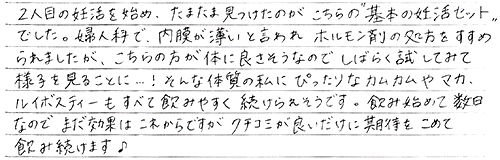 2人目の妊活を始め、たまたま見つけたのが こちらの"基本の妊活セット"
でした。婦人科で、内膜が薄いと言われ ホルモン剤の処方をすすめ
られましたが、こちらの方が体に良さそうなので しばらく試してみて
様子を見ることに…！そんな体質の私に ぴったりなカムカムやマカ、
ルイボスティーもすべて飲みやすく 続けられそうです。飲み始めて数日
なので まだ効果は これからですが クチコミが良いだけに期待をこめて
飲み続けます♪